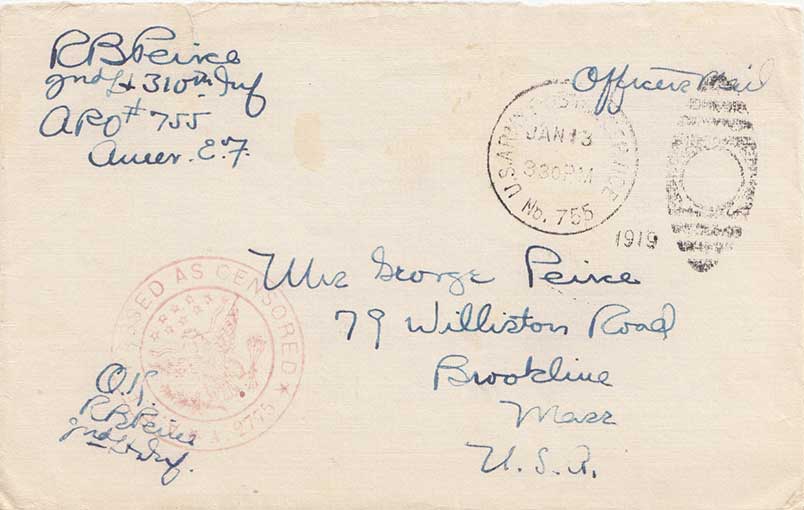 R B Peirce
2nd Lt 310th Inf
APO # 755
Amer. E.F.
Officers Mail
U.S. ARMY SERVICE
JAN 13
330 PM
No. 755
1919
Mrs George Peirce
79 Williston Road
Brookline
Mass
U.S.A.
PASSED AS CENSORED
A. 9775
O.K.
R B Peirce
2nd Lt Inf.